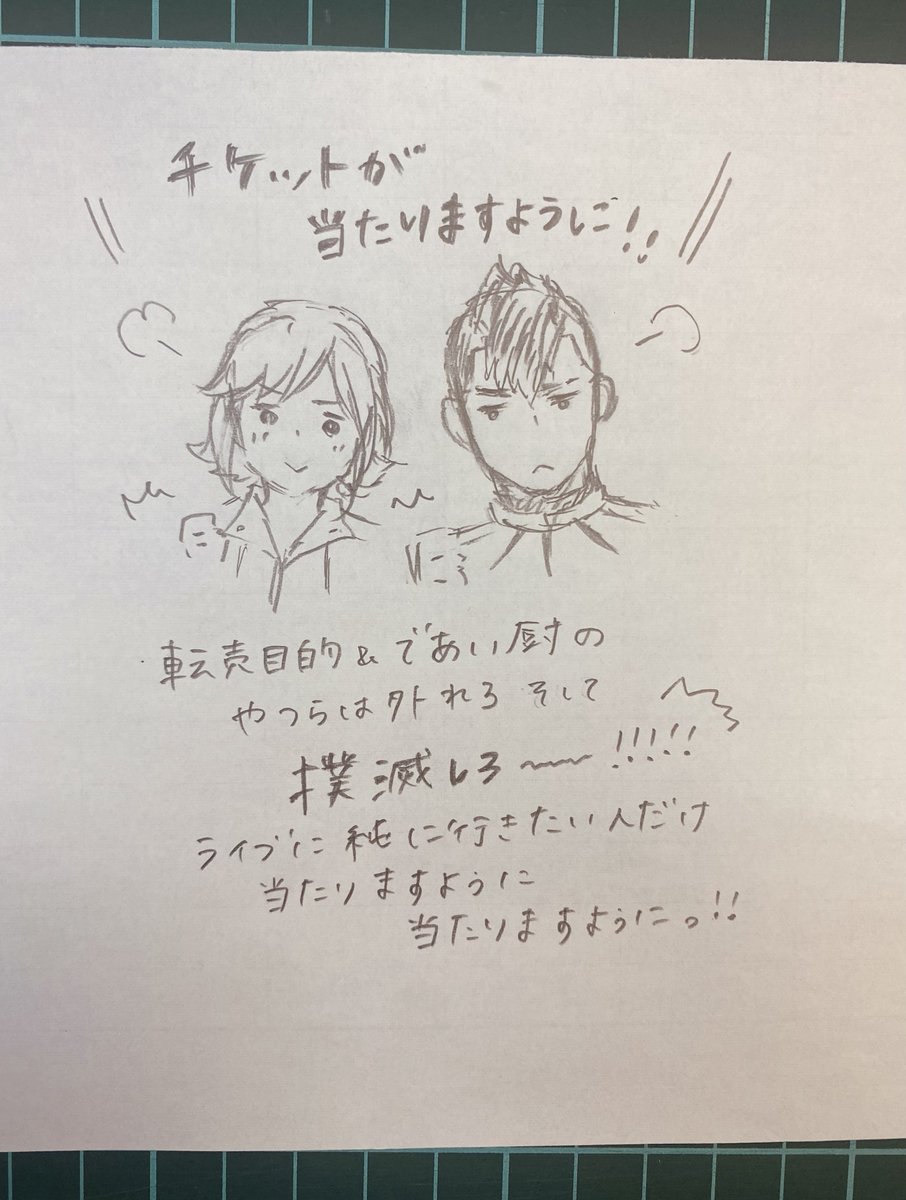 チケットが
当たりますように!!
転売目的&であい厨の
やつらは外れろ そして
撲滅しろ〜〜!!!!!
ライブに純に行きたい人だけ
当たりますように
当たりますようにっ!!